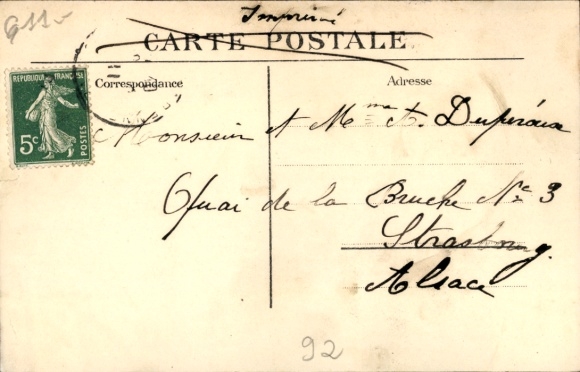 Imprimé
CARTE POSTALE
Correspondance
Adresse
REPUBLIQUE FRANÇAISE
5c
POSTES
Monsieur et Mme A.
Quai de la Bruche No 3
Strasbourg
Alsace
92